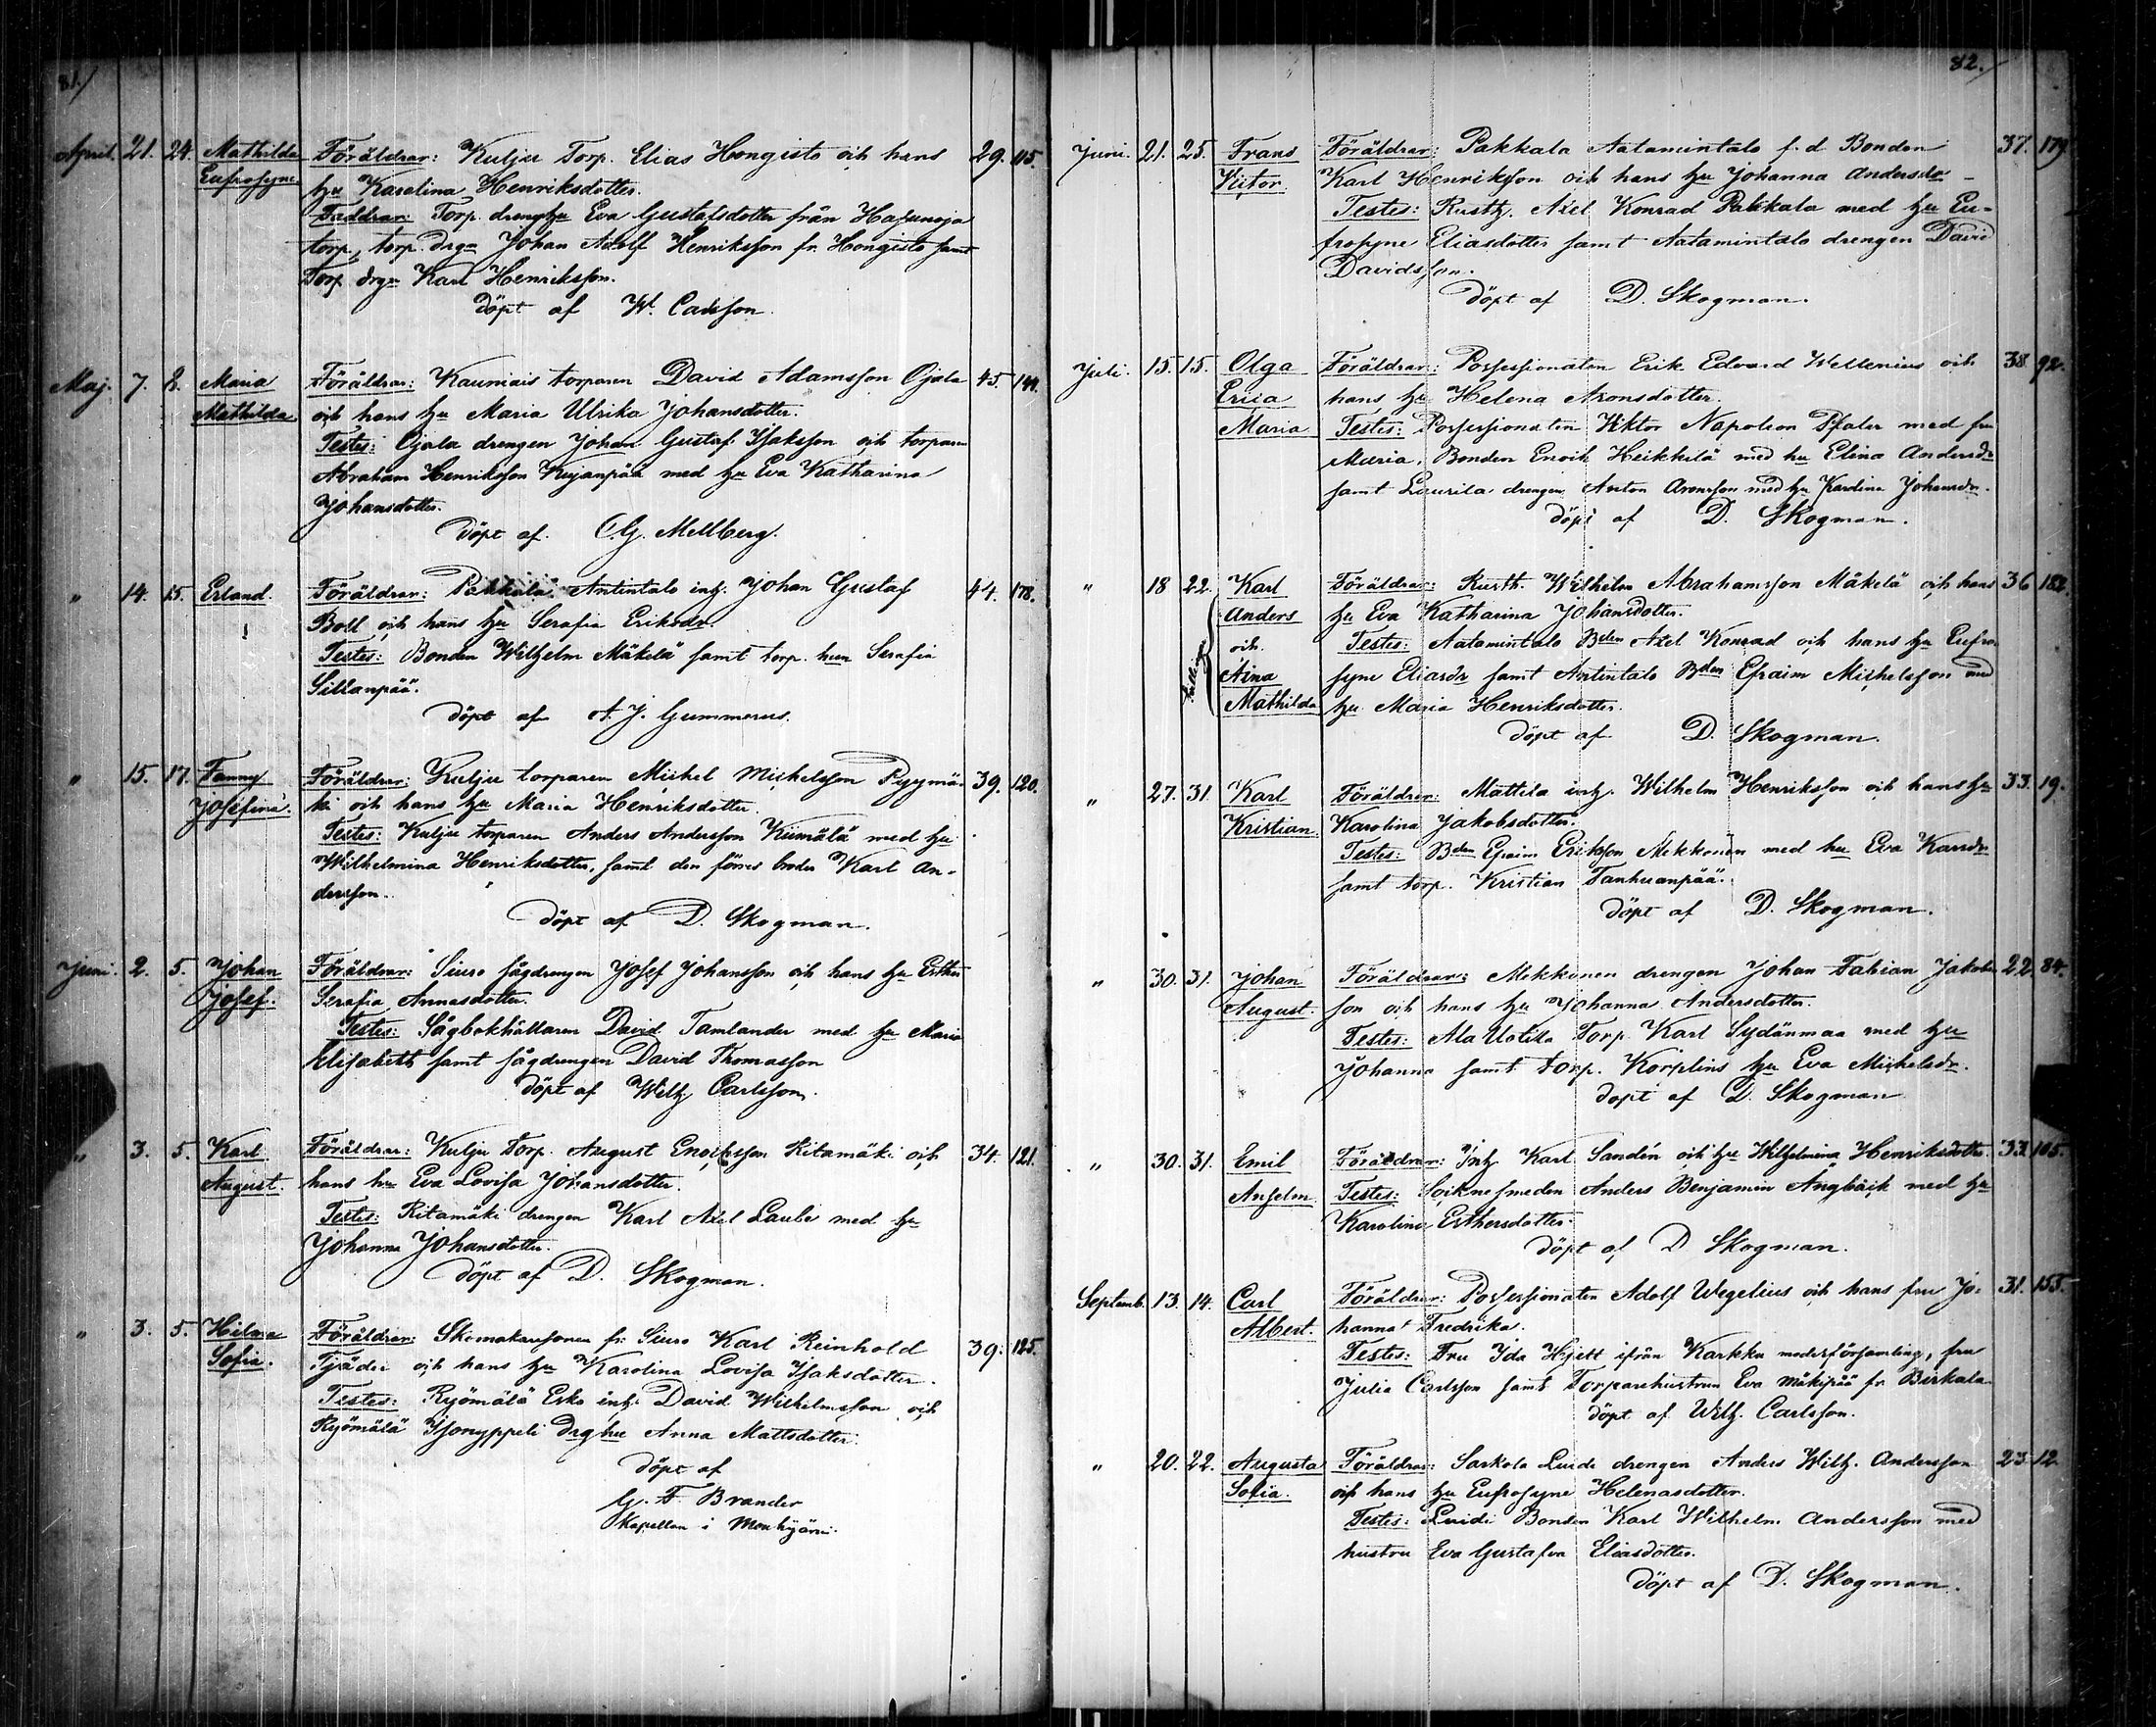 81./
April. 21. 24. Mathilda Föräldrar: Kulju Torp. Elias Hongisto och hans 29. 115.
Eufrosyne hu Karolina Henriksdotter.
Faddrar: Torp. drenghu Eva Gustafsdotter från Hafunoja
torp, torp. drgn Johan Adolf Henriksson fr. Hongisto samt
Torp drgn Karl Henriksson.
döpt af W. Carlsson.
Maj. 7. 8. Maria Föräldrar: Kauniais torparen David Adamsson Ojala 45. 144.
Mathilda och hans hu Maria Ulrika Johansdotter.
Testes: Ojala drengen Johan Gustaf Isaksson och torparen
Abraham Henriksson Kujanpää med hu Eva Katharina
Johansdotter.
döpt af. C.G. Mellberg.
" 14. 15. Erland. Föräldrar: Pakkala Antintalo inh. Johan Gustaf 44. 178.
Boll och hans hu Serafia Eriksdr
Testes: Bonden Wilhelm Mäkelä samt torp. hun Serafia
Sillanpää.
döpt af A. J. Gummerus.
" 15. 17. Fanny Föräldrar: Kulju torparen Michel Michelsson Pyymä- 39. 120.
Josefina. ki och hans hu Maria Henriksdotter.
Testes: Kulju torparen Anders Andersson Kiimälä med hu
Wilhelmina Henriksdotter, samt den förres broder Karl An-
dersson.
döpt af D. Skogman.
Juni. 2. 5. Johan Föräldrar: Siuro sågdrengen Josef Johansson och hans hu Esther
Josef. Serafia Annasdotter.
Testes: Sågbokhållaren David Tamlander med hu Maria
Elisabeth samt sågdrengen David Thomasson
döpt af Wilh Carlsson.
" 3. 5. Karl Föräldrar: Kulju Torp. August Enochsson Ritamäki och 34. 121.
August. hans hu Eva Lovisa Johansdotter.
Testes: Ritamäki drengen Karl Axel Laube med hu
Johanna Johansdotter.
döpt af D. Skogman.
" 3. 5. Hilma Föräldrar: Skomakaresonen fr. Siuro Karl Reinhold 39. 125.
Sofia. Tjäder och hans hu Karolina Lovisa Isaksdotter.
Testes: Kyömälä Esko inh. David Wilhelmsson och
Kyömälä Isonyppeli drghu Anna Mattsdotter.
döpt af
G. F Brander
Kapellan i Mouhijärvi.
82./
Juni. 21. 25. Frans Föräldrar: Pakkala Aatamintalo f.d Bonden 37. 179.
Viktor. Karl Henriksson och hans hu Johanna Andersdr
Testes: Rusth. Axel Konrad Pakkala med hu Eu-
frosyne Eliasdotter samt Aatamintalo drengen David
Davidsson.
döpt af D. Skogman.
Juli. 15. 15. Olga Föräldrar: Possessionaten Erik Edvard Wellenius och 38. 92.
Erica hans hu Helena Aronsdotter.
Maria Testes: Possessionaten Viktor Napoleon Pfaler med fru
Maria, Bonden Enoch Heikkilä med hu Elina Andersdr
samt Laurila drengen Anton Aronsson med hu Karolina Johansdr.
döpt af D. Skogman.
" 18 22. Karl Föräldrar: Rusth. Wilhelm Abrahamsson Mäkelä och hans 36 182.
Anders hu Eva Katharina Johansdotter.
och Testes: Aatamintalo Bden Axel Konrad och hans hu Eufro-
tvillingar Aina syne Eliasdr samt Antintalo Bden Efraim Michelsson med
Mathilda hu Maria Henriksdotter.
döpt af D. Skogman.
" 27. 31. Karl Föräldrar: Mattila inh. Wilhelm Henriksson och hans hu 33. 19.
Kristian. Karolina Jakobsdotter.
Testes: Bden Efraim Eriksson Mekkonen med hu Eva Karsdr
samt torp. Kristian Tanhuanpää.
döpt af D. Skogman.
" 30. 31. Johan Föräldrar: Mekkonen drengen Johan Fabian Jakobs- 22. 84.
August. son och hans hu Johanna Andersdotter.
Testes: Ala Uotila Torp. Karl Sydänmaa med hu
Johanna samt torp. Korplins hu Eva Michelsdr.
döpt af D. Skogman
" 30. 31. Emil Föräldrar: Inh Karl Sandén och hu Wilhelmina Henriksdotter. 33. 105.
Anselm. Testes: Socknesmeden Anders Benjamin Ångbäck med hu
Karolina Esthersdotter.
döpt af D Skogman.
Septemb. 13. 14. Carl Föräldrar: Possessionaten Adolf Wegelius och hans fru Jo- 31. 155.
Albert. hanna Fredrika.
Testes: Fru Ida Hjelt ifrån Karkku moderförsamling, fru
Julia Carlsson samt Torparehustrun Eva Mäkipää fr. Birkala
döpt af Wilh. Carlsson.
" 20. 22. Augusta Föräldrar: Sarkola Luide drengen Anders Wilh. Andersson 23. 12.
Sofia. och hans hu Eufrosyne Helenasdotter.
Testes: Luidi Bonden Karl Wilhelm Andersson med
hustru Eva Gustafva Eliasdotter.
döpt af D. Skogman.